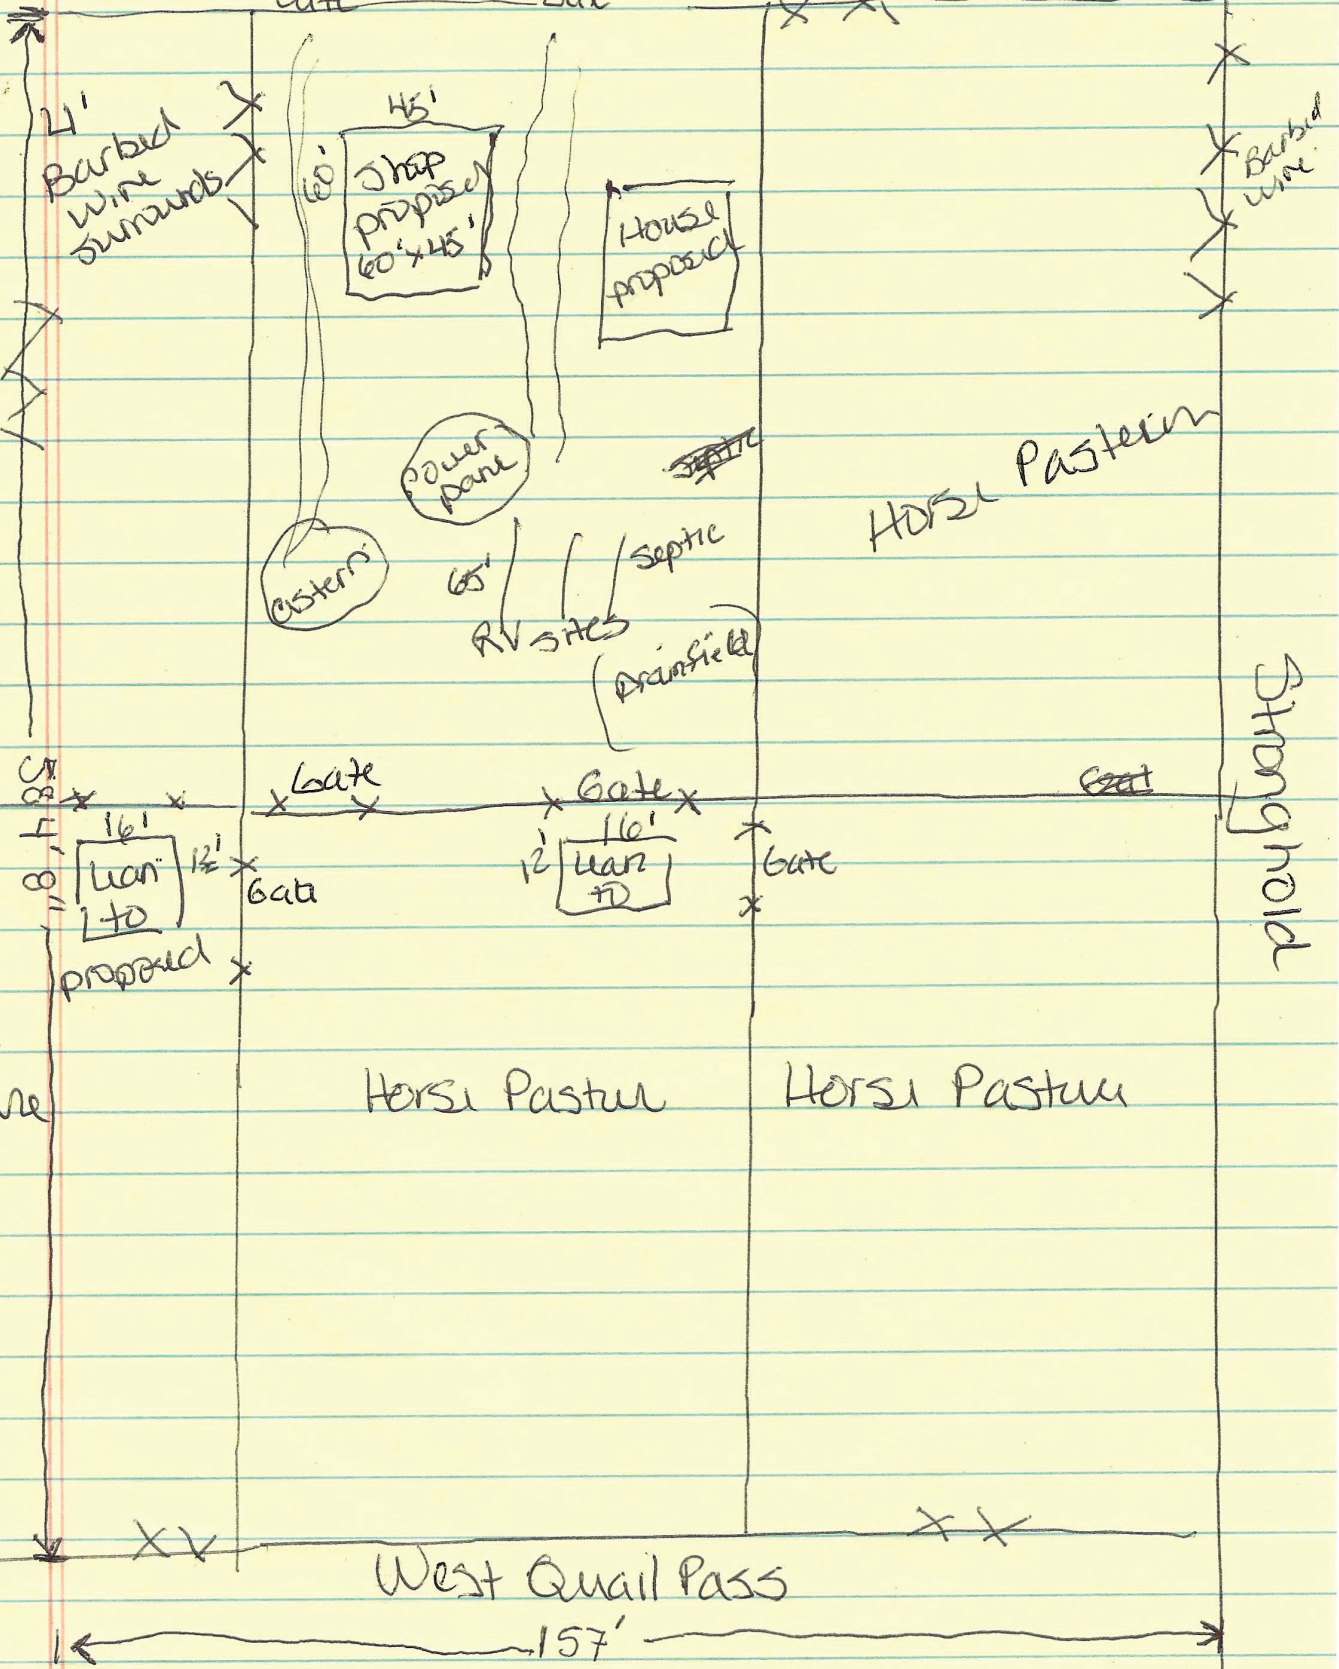 Gate
4'
Barbed
wire
surrounds
45'
60'
Shop
proposed
60'x45'
House
proposed
Barbed
wire
Power
Septic
Horse
Cistern
65'
Septic
RV sites
Drainfield
Stronghold
Gate
Gate
16'
12'
Lean
to
proposed
Gate
16'
12'
Lean
to
Gate
Horse Pasture
Horse Pasture
West Quail Pass
157'